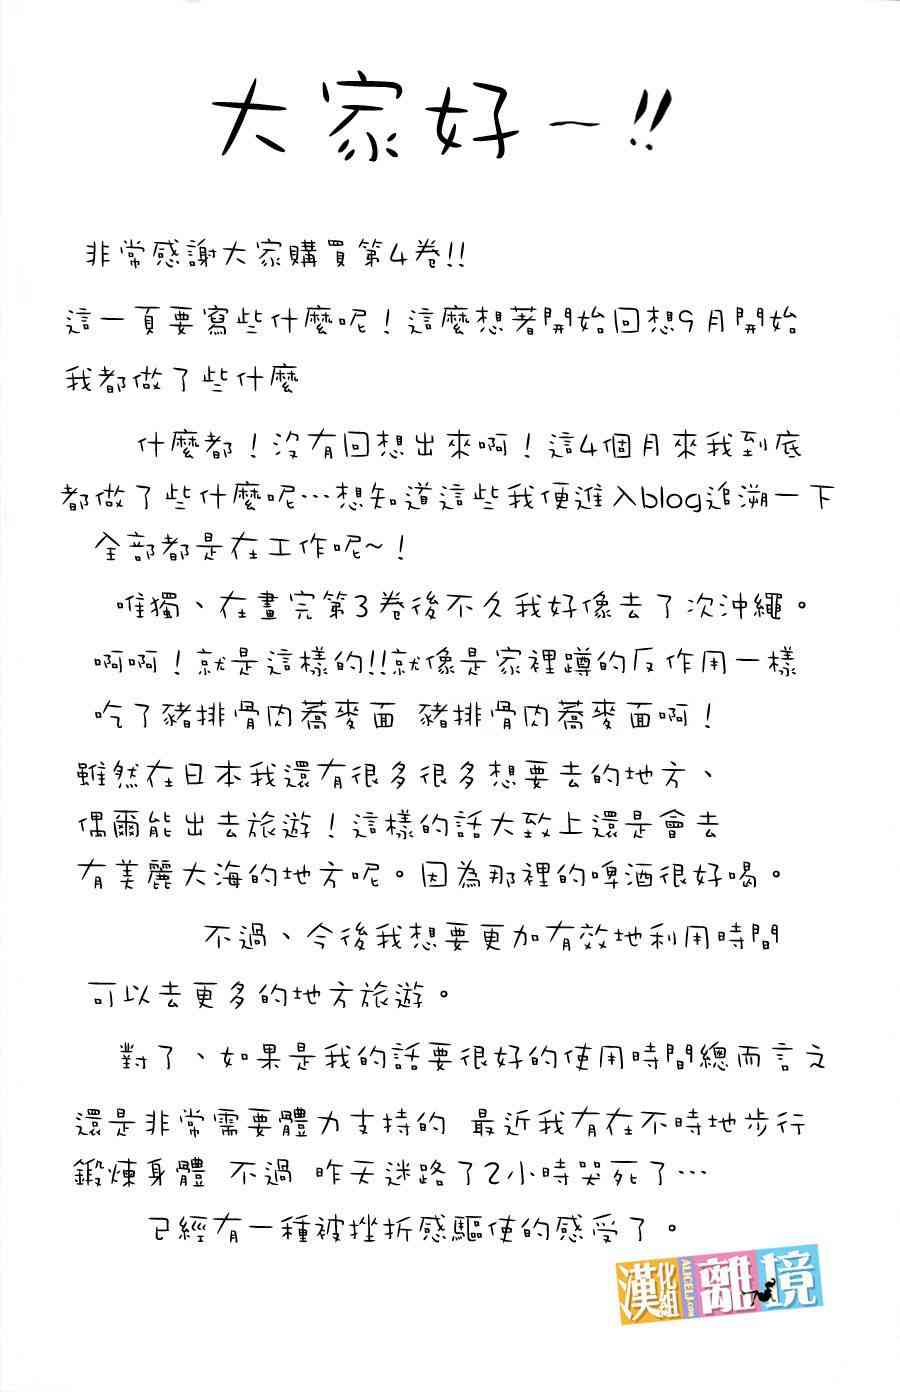 大家好～!!
非常感謝大家購買第4卷!!
這一頁要寫些什麼呢！這麼想著開始回想9月開始
我都做了些什麼
什麼都！沒有回想出來啊！這4個月來我到底
都做了些什麼呢…想知道這些我便進入blog追溯一下
全部都是在工作呢~！
唯獨、在畫完第3卷後不久我好像去了次沖繩。
啊啊！就是這樣的!!就像是家裡蹲的反作用一樣
吃了豬排骨肉蕎麥面 豬排骨肉蕎麥面啊！
雖然在日本我還有很多很多想要去的地方、
偶爾能出去旅遊！這樣的話大致上還是會去
有美麗大海的地方呢。因為那裡的啤酒很好喝。
不過、今後我想要更加有效地利用時間
可以去更多的地方旅遊。
對了、如果是我的話要很好的使用時間總而言之
還是非常需要體力支持的 最近我有在不時地步行
鍛煉身體 不過 昨天迷路了2小時哭死了…
已經有一種被挫折感驅使的感受了。
漢化組 ALICELJ.COM 離境